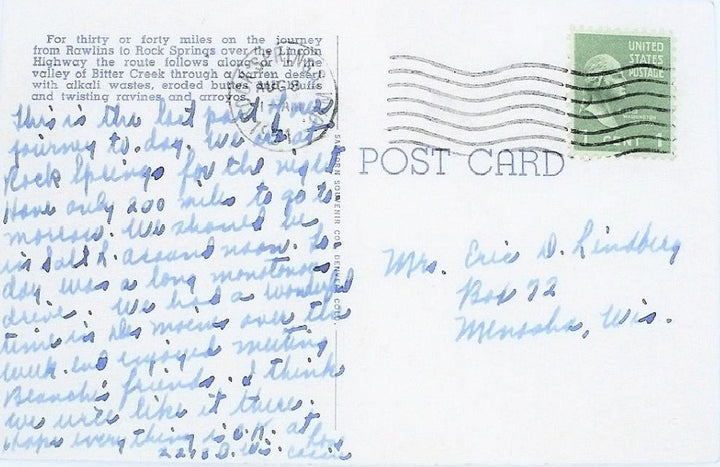 For thirty or forty miles on the journey
from Rawlins to Rock Springs over the Lincoln
Highway the route follows along or in the
valley of Bitter Creek through a barren desert
with alkali wastes, eroded buttes and bluffs
and twisting ravines and arroyos.
This is the last part of our
journey to-day. We are at
Rock Springs for the night
Have only 200 miles to go to
morrow. We should be
in Salt L. around noon. To
day was a long monotonous
drive. We had a wonderful
time in Des Moines over the
week end enjoyed meeting
Blanche's friends. I think
we will like it there.
I hope everything is O.K. at
SANBORN SOUVENIR CO., DENVER, COLO.
ROCK SPRINGS
AUG 8
UNITED
STATES
POSTAGE
WASHINGTON
1 CENT 1
POST CARD
Mrs. Eric D. Lindberg
Box 72
Menasha, Wis.